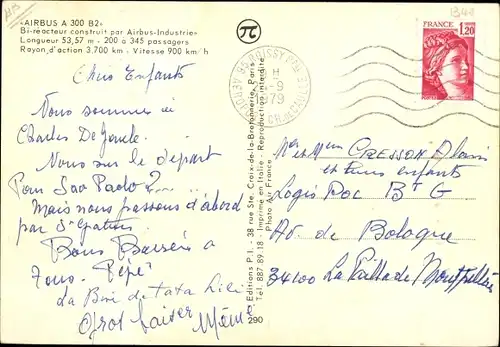 «AIRBUS A 300 B2»
Bi-réacteur construit par Airbus-Industrie
Longueur 53,57 m - 200 à 345 passagers
Rayon d'action 3.700 km - Vitesse 900 km/h
Chers Enfants
Nous sommes à
Charles De Gaule
Nous sur le départ
Pour Sao Paolo
Mais nous passons d'abord
par
Bons Baisers à
Tous. Pépé
La Bise de tata Lili
Gros baiser Mémé
Editions P.I. - 38 rue Ste Croix-de-la-Bretonnerie, Paris
Tél. 887 89.18 - Imprimé en Italie - Reproduction interdite
Photo Air France
290
95 ROISSY
-9
1979
FRANCE
1,20
POSTES
Mr et Mme CRESSON Alain
et leurs enfants
Logis Roc Bt G
Av. de Bologne
34100 La Paillade Montpellier